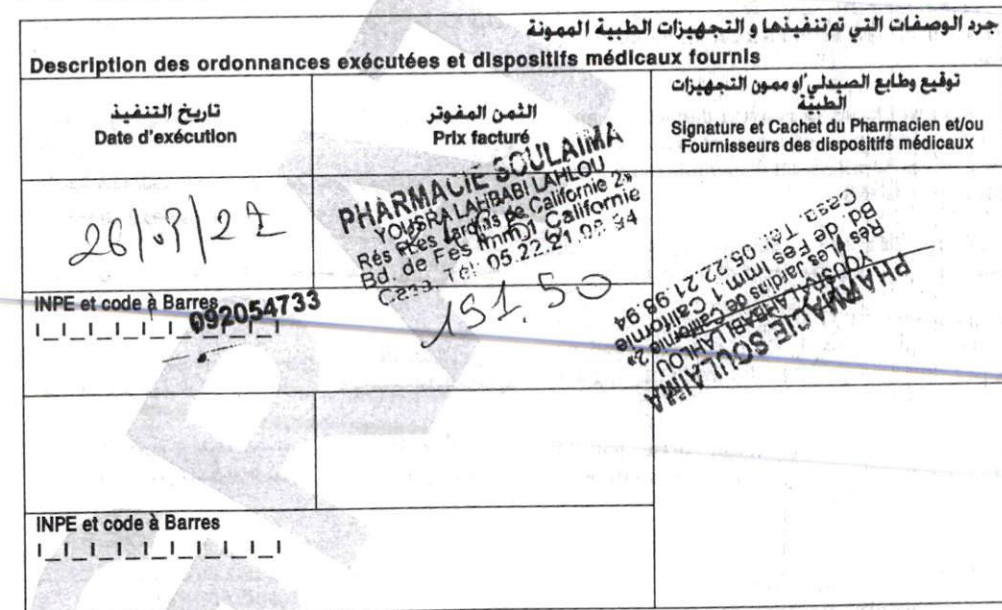 جرد الوصفات التي تم تنفيذها و التجهيزات الطبية الممونة
Description des ordonnances exécutées et dispositifs médicaux fournis
تاريخ التنفيذ
Date d'exécution
الثمن المفوتر
Prix facturé
توقيع وطابع الصيدلي/او ممون التجهيزات
الطبية
Signature et Cachet du Pharmacien et/ou
Fournisseurs des dispositifs médicaux
26/03/22
PHARMACIE SOULAIMA
YOUSRA LAHBABI LAHLOU
Rés «Les Jardins de Californie 2»
Bd. de Fes Imm 1 Californie
Casa. Tél: 05.22.21.98.94
151,50
PHARMACIE SOULAIMA
YOUSRA LAHBABI LAHLOU
Rés «Les Jardins de Californie 2»
Bd. de Fes Imm 1 Californie
Casa. Tél: 05.22.21.98.94
INPE et code à Barres
092054733
INPE et code à Barres